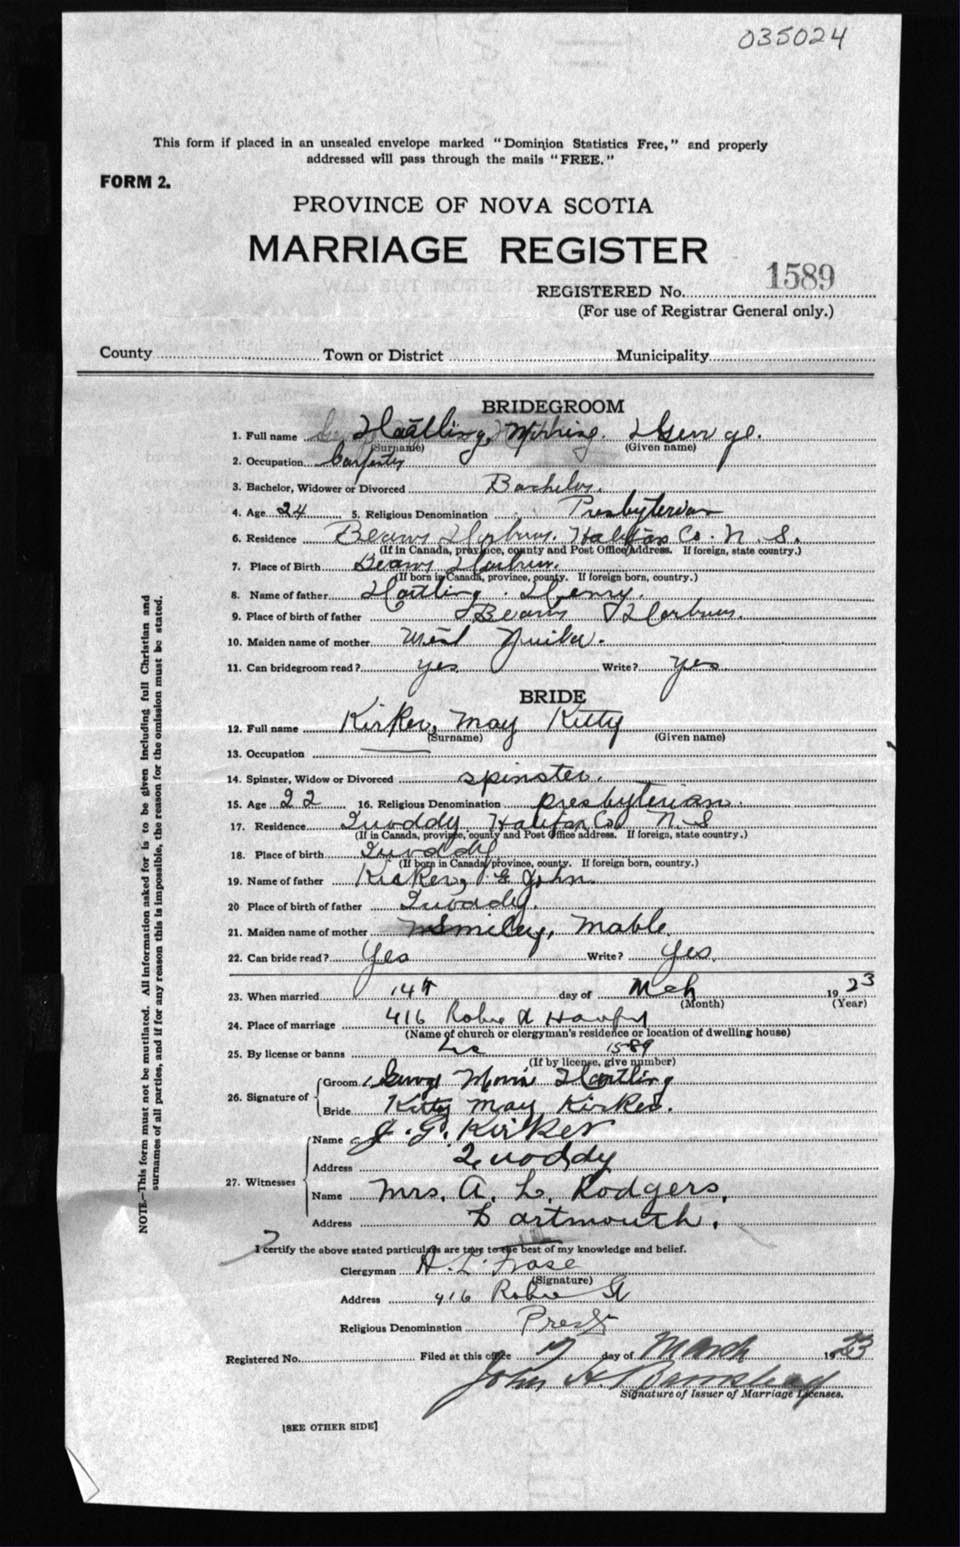 035024
This form if placed in an unsealed envelope marked "Dominion Statistics Free," and properly
addressed will pass through the mails "FREE."
FORM 2.
PROVINCE OF NOVA SCOTIA
MARRIAGE REGISTER
REGISTERED No. 1589
(For use of Registrar General only.)
County Town or District Municipality
BRIDEGROOM
1. Full name Hartling, George.
(Surname) (Given name)
2. Occupation
3. Bachelor, Widower or Divorced Bachelor.
4. Age 24 5. Religious Denomination Presbyterian
6. Residence Beaver Harbour. Halifax Co. N. S.
(If in Canada, province, county and Post Office Address. If foreign, state country.)
7. Place of Birth Beaver Harbour.
(If born in Canada, province, county. If foreign born, country.)
8. Name of father Hartling. Henry.
9. Place of birth of father Beaver Harbour.
10. Maiden name of mother
11. Can bridegroom read? yes Write? yes
BRIDE
12. Full name Kirker, May Kitty
(Surname) (Given name)
13. Occupation
14. Spinster, Widow or Divorced spinster.
15. Age 22 16. Religious Denomination presbyterian.
17. Residence Quoddy Halifax Co N. S
(If in Canada, province, county and Post Office address. If foreign, state country.)
18. Place of birth Quoddy
(If born in Canada, province, county. If foreign born, country.)
19. Name of father Kirker, G John
20 Place of birth of father Quoddy.
21. Maiden name of mother Smiley, Mable
22. Can bride read? Yes Write? Yes.
23. When married 14th day of Mch 1923
(Month) (Year)
24. Place of marriage 416 Robie St Halifax
(Name of church or clergyman's residence or location of dwelling house)
25. By license or banns Lic 1589
(If by license, give number)
26. Signature of Groom George Hartling
Bride Kitty May Kirker.
27. Witnesses Name J. G. Kirker
Address Quoddy
Name Mrs. A. L. Rodgers,
Address Dartmouth.
I certify the above stated particulars are true to the best of my knowledge and belief.
Clergyman
(Signature)
Address 416 Robie St
Religious Denomination
Registered No. Filed at this office day of March 1923
John H. Barnstead
Signature of Issuer of Marriage Licenses.
[SEE OTHER SIDE]
NOTE.—This form must not be mutilated. All information asked for is to be given including full Christian and
surnames of all parties, and if for any reason this is impossible, the reason for the omission must be stated.